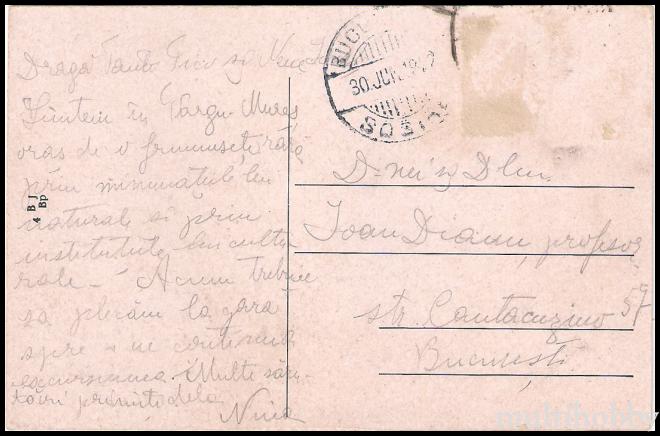 Dragă Tanti și Nene
Suntem în Târgu-Mureș
oraș de o frumusețe rară
prin minunățiile lui
naturale și prin
institutiile lui cultu-
rale - Acum trebuie
să plecăm la gară
spre a ne continua
excursiunea. Multe săru-
tări primiți dela
Nina
BUCU
30.JUN.19
SOSIRE
4 B J
Bp
D-nei și D-lui
Ioan Dianu, profesor
str. Cantacuzino 57
București
multihobby